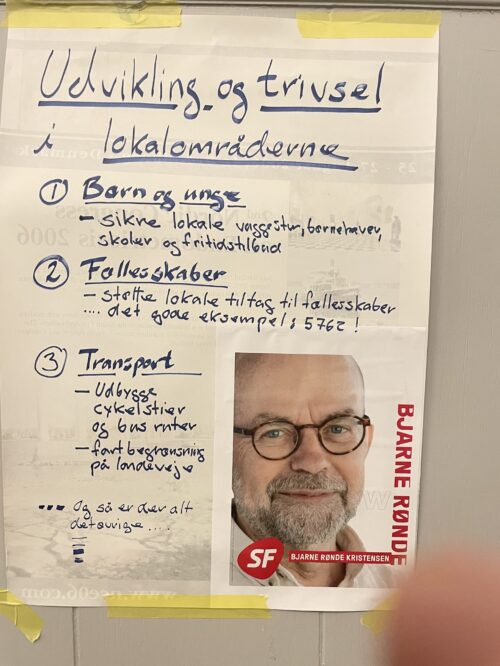 Udvikling og trivsel
i lokalområderne
① Børn og unge
– sikre lokale vuggestur, børnehaver,
skoler og fritidstilbud
② Fællesskaber
– støtte lokale tiltag til fællesskaber
.... det gode eksempel: 5762!
③ Transport
– Udbygge
cykelstier
og bus ruter
– fartbegrænsning
på landeveje
--- Og så er der alt
det øvrige ....
BJARNE RØNDE
SF
BJARNE RØNDE KRISTENSEN